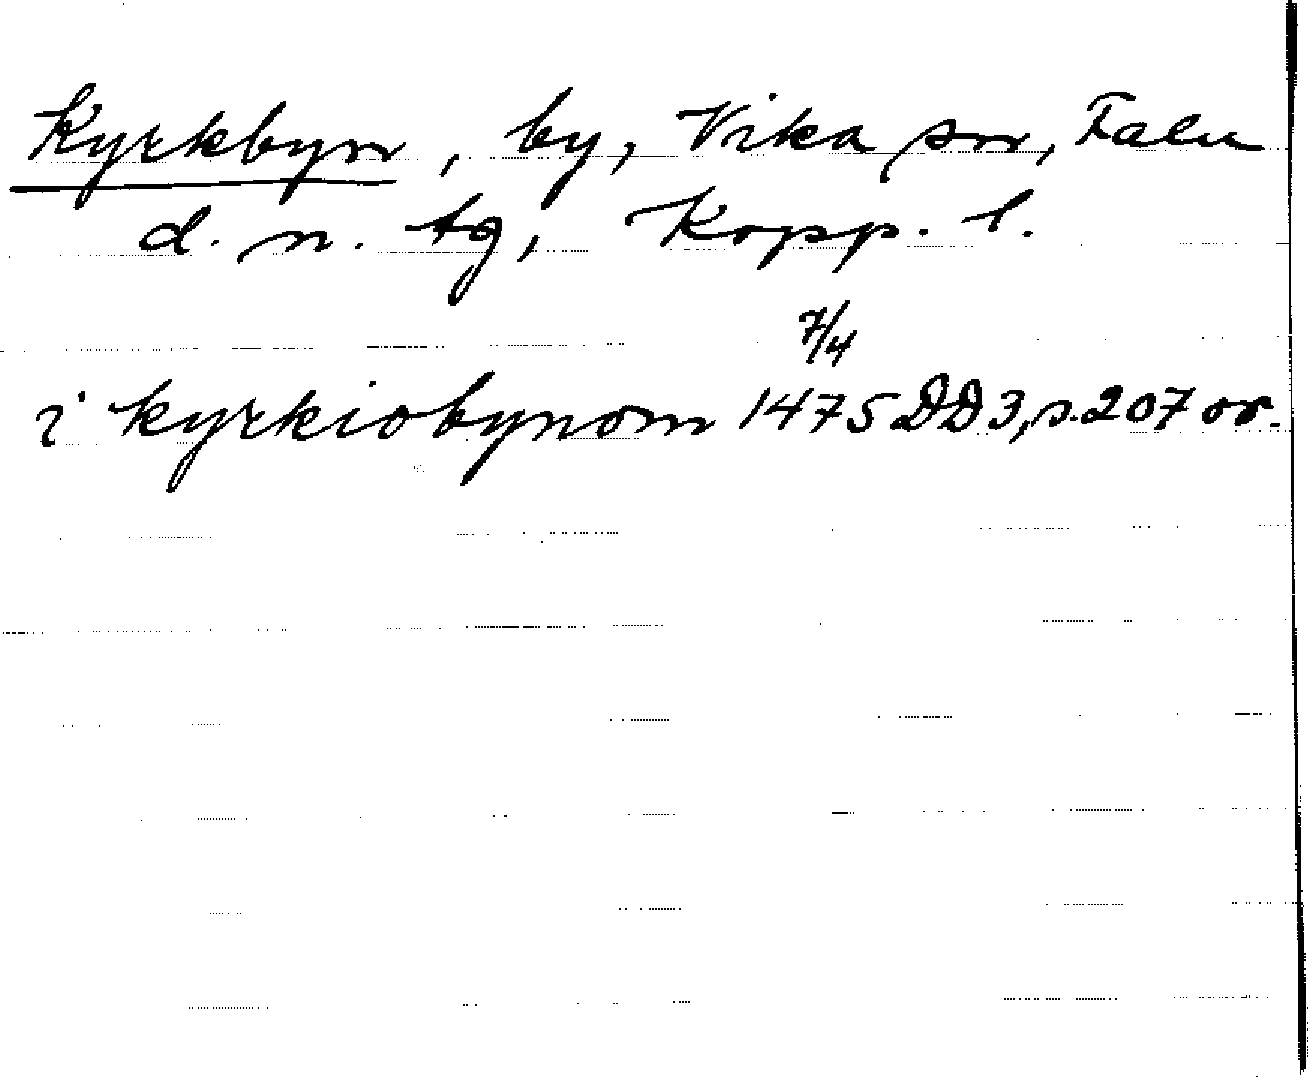 Kyrkbyn, by, Vika sn, Falu
d. n. tg, Kopp. l.
7/4
i kyrkiobynom 1475 DD3, s. 207 or.